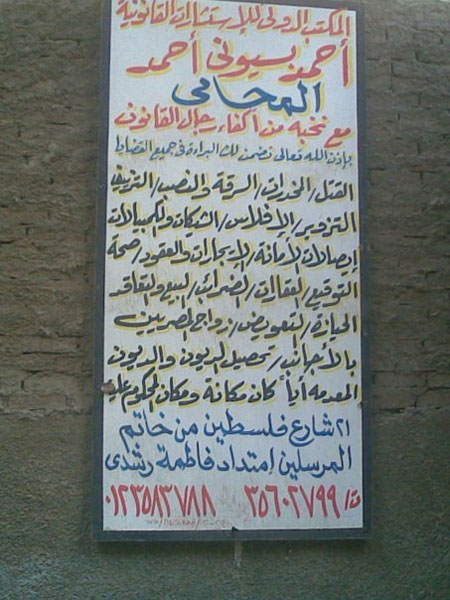 المكتب الدولى للإستشارات القانونية
أحمد بسيونى أحمد
المحامى
مع نخبه من أكفاء رجال القانون
بإذن الله تعالى نضمن لك البراءة فى جميع القضايا
القتل/المخدرات/السرقة والنصب/التزييف
التزوير/الإفلاس/الشيكات والكمبيالات
إيصالات الأمانة/الإيجارات والعقود/صحة
التوقيع/العقارات/الضرائب/البيع والتعاقد
الحيازة/التعويض/زواج المصريين
بالأجانب/تحصيل الديون والديون
المعدمه أياً كان مكانة ومكان المحكوم عليه
٢١ شارع فلسطين من خاتم
المرسلين إمتداد فاطمة رشدى
ت/ ٣٥٦٠٢٧٩٩ ٠١٢٣٥٨٣٧٨٨